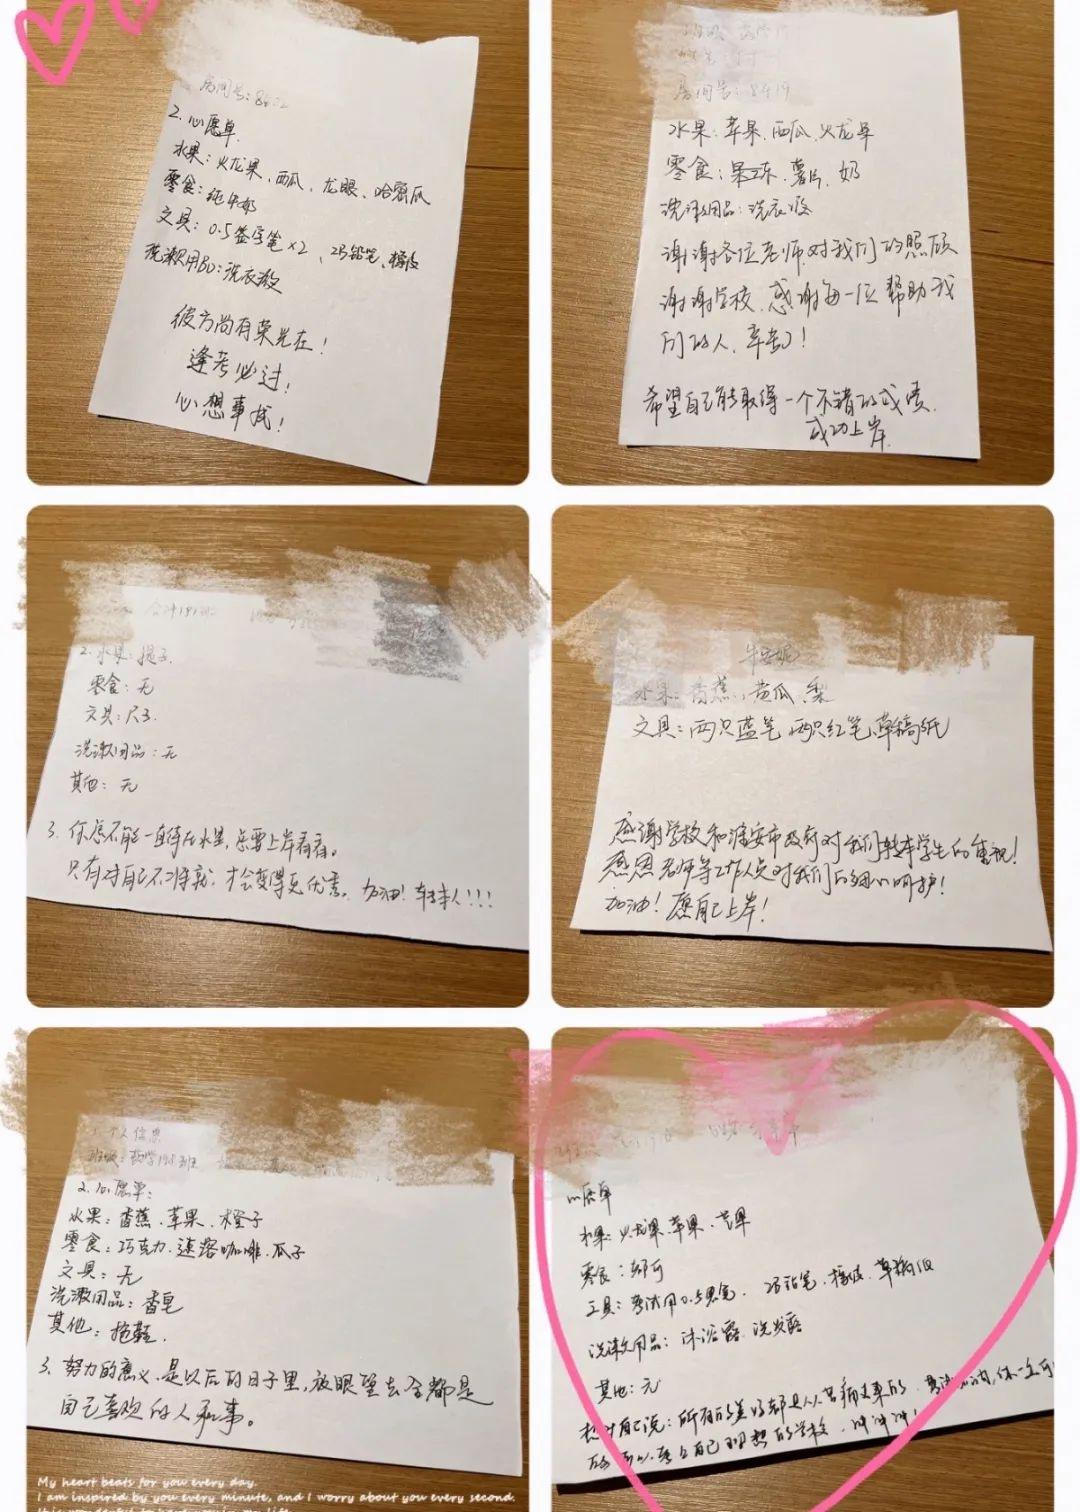 房间号：8402
2.心愿单
水果：火龙果、西瓜、龙眼、哈密瓜
零食：纯牛奶
文具：0.5签字笔×2、2B铅笔、橡皮
洗漱用品：洗衣液
彼方尚有荣光在！
逢考必过！
心想事成！
房间号：8419
水果：苹果、西瓜、火龙果
零食：果冻、薯片、奶
洗漱用品：洗衣液
谢谢各位老师对我们的照顾
谢谢学校、感谢每一位帮助我
们的人、辛苦了！
希望自己能取得一个不错的成绩、
成功上岸
2.水果：提子
零食：无
文具：尺子
洗漱用品：无
其他：无
3.你总不能一直待在水里，总要上岸看看。
只有对自己不将就，才会变得更优秀。加油！转本人！！！
水果：香蕉、黄瓜、梨
文具：两只蓝笔、两只红笔、草稿纸
感谢学校和淮安市政府对我们转本学生的重视！
感恩老师等工作人员对我们的细心呵护！
加油！愿自己上岸！
个人信息
班级：药学
2.心愿单：
水果：香蕉、苹果、橙子
零食：巧克力、速溶咖啡、瓜子
文具：无
洗漱用品：香皂
其他：拖鞋
3.努力的意义，是以后的日子里，放眼望去全都是
自己喜欢的人和事。
心愿单
水果：火龙果、苹果、芒果
零食：都可
工具：考试用0.5黑笔、2B铅笔、橡皮、草稿纸
洗漱用品：沐浴露、洗发露
其他：无
想对自己说：所有的美好都是从苦痛
自己理想的学校，冲冲冲！
My heart beats for you every day.
I am inspired by you every minute, and I worry about you every second.